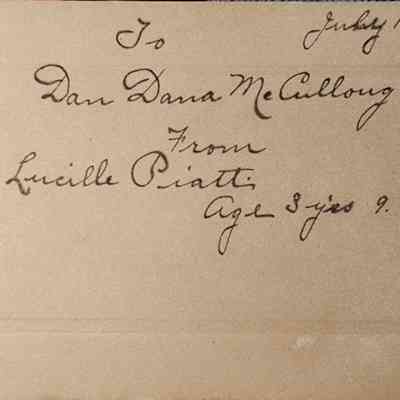 July 1
To
Dan Dana McCulloug
From
Lucille Piatt
Age 3 yrs 9.